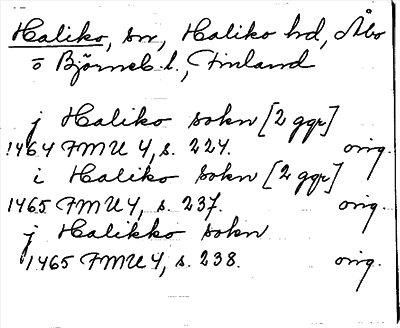 Haliko, sn, Haliko hd, Åbo
o Björneb. l., Finland
j Haliko sokn [2 ggr]
1464 FMU 4, s. 224. orig.
i Haliko sokn [2 ggr]
1465 FMU 4, s. 237. orig.
j Halikko sokn
1465 FMU 4, s. 238. orig.